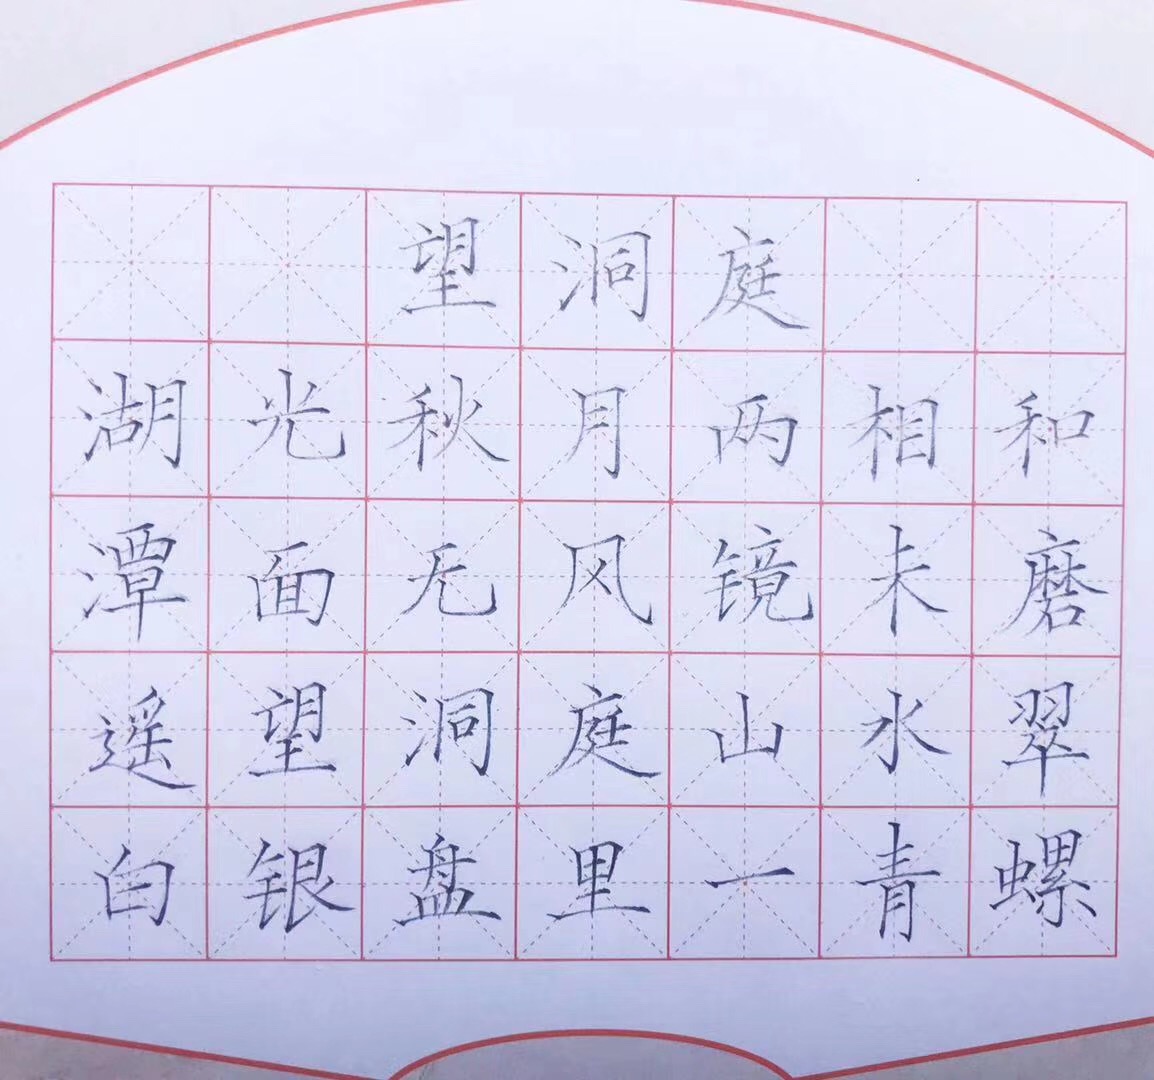 望洞庭
湖光秋月两相和
潭面无风镜未磨
遥望洞庭山水翠
白银盘里一青螺